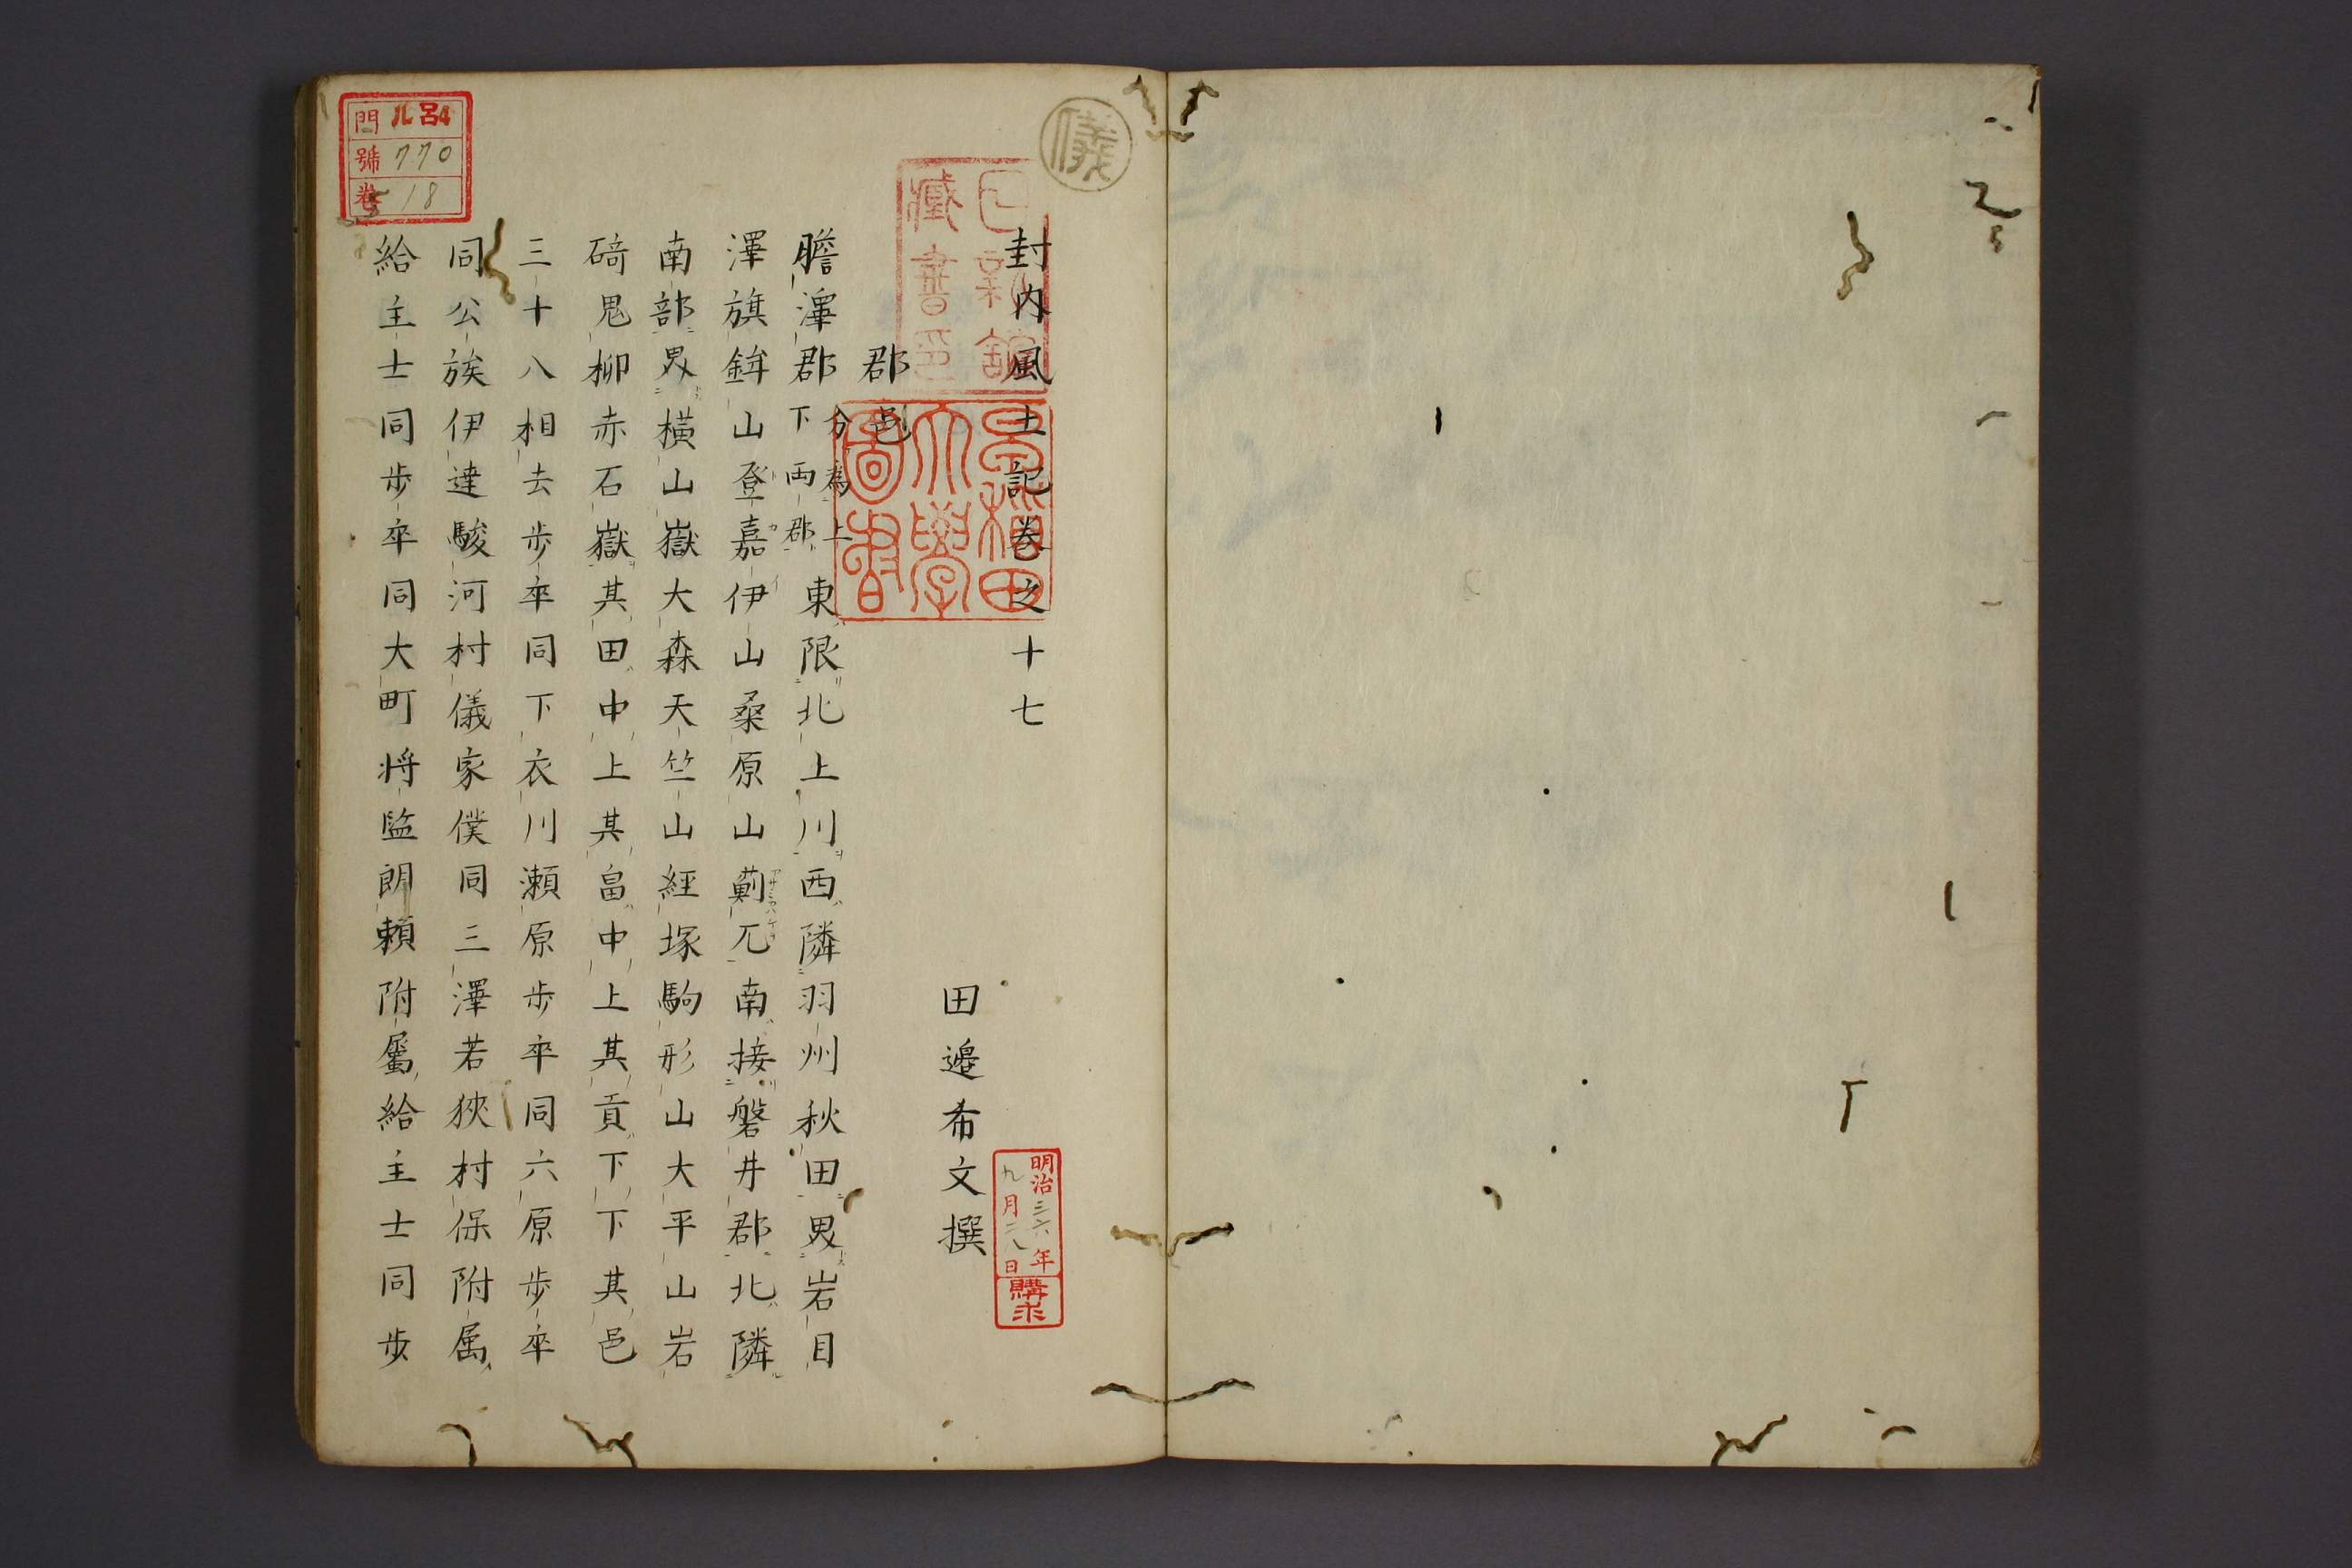 封内風土記巻之十七
田邉希文撰
郡邑
膽澤郡 分為上下両郡 東限北上川西隣羽州秋田界岩目
澤旗鉾山登嘉伊山桑原山薊兀南接磐井郡北隣
南部界横山嶽大森天竺山經塚駒形山大平山岩
碕鬼柳赤石嶽其田中上其畠中上其貢下下其邑
三十八相去歩卒同下衣川瀬原歩卒同六原歩卒
同公族伊達駿河村儀家僕同三澤若狹村保附属
給主士同歩卒同大町将監朗頼附屬給主士同歩
儀
藏書印
早稲田大學圖書
明治三六年九月二八日購求
門 ル呂4
號 770
巻 18